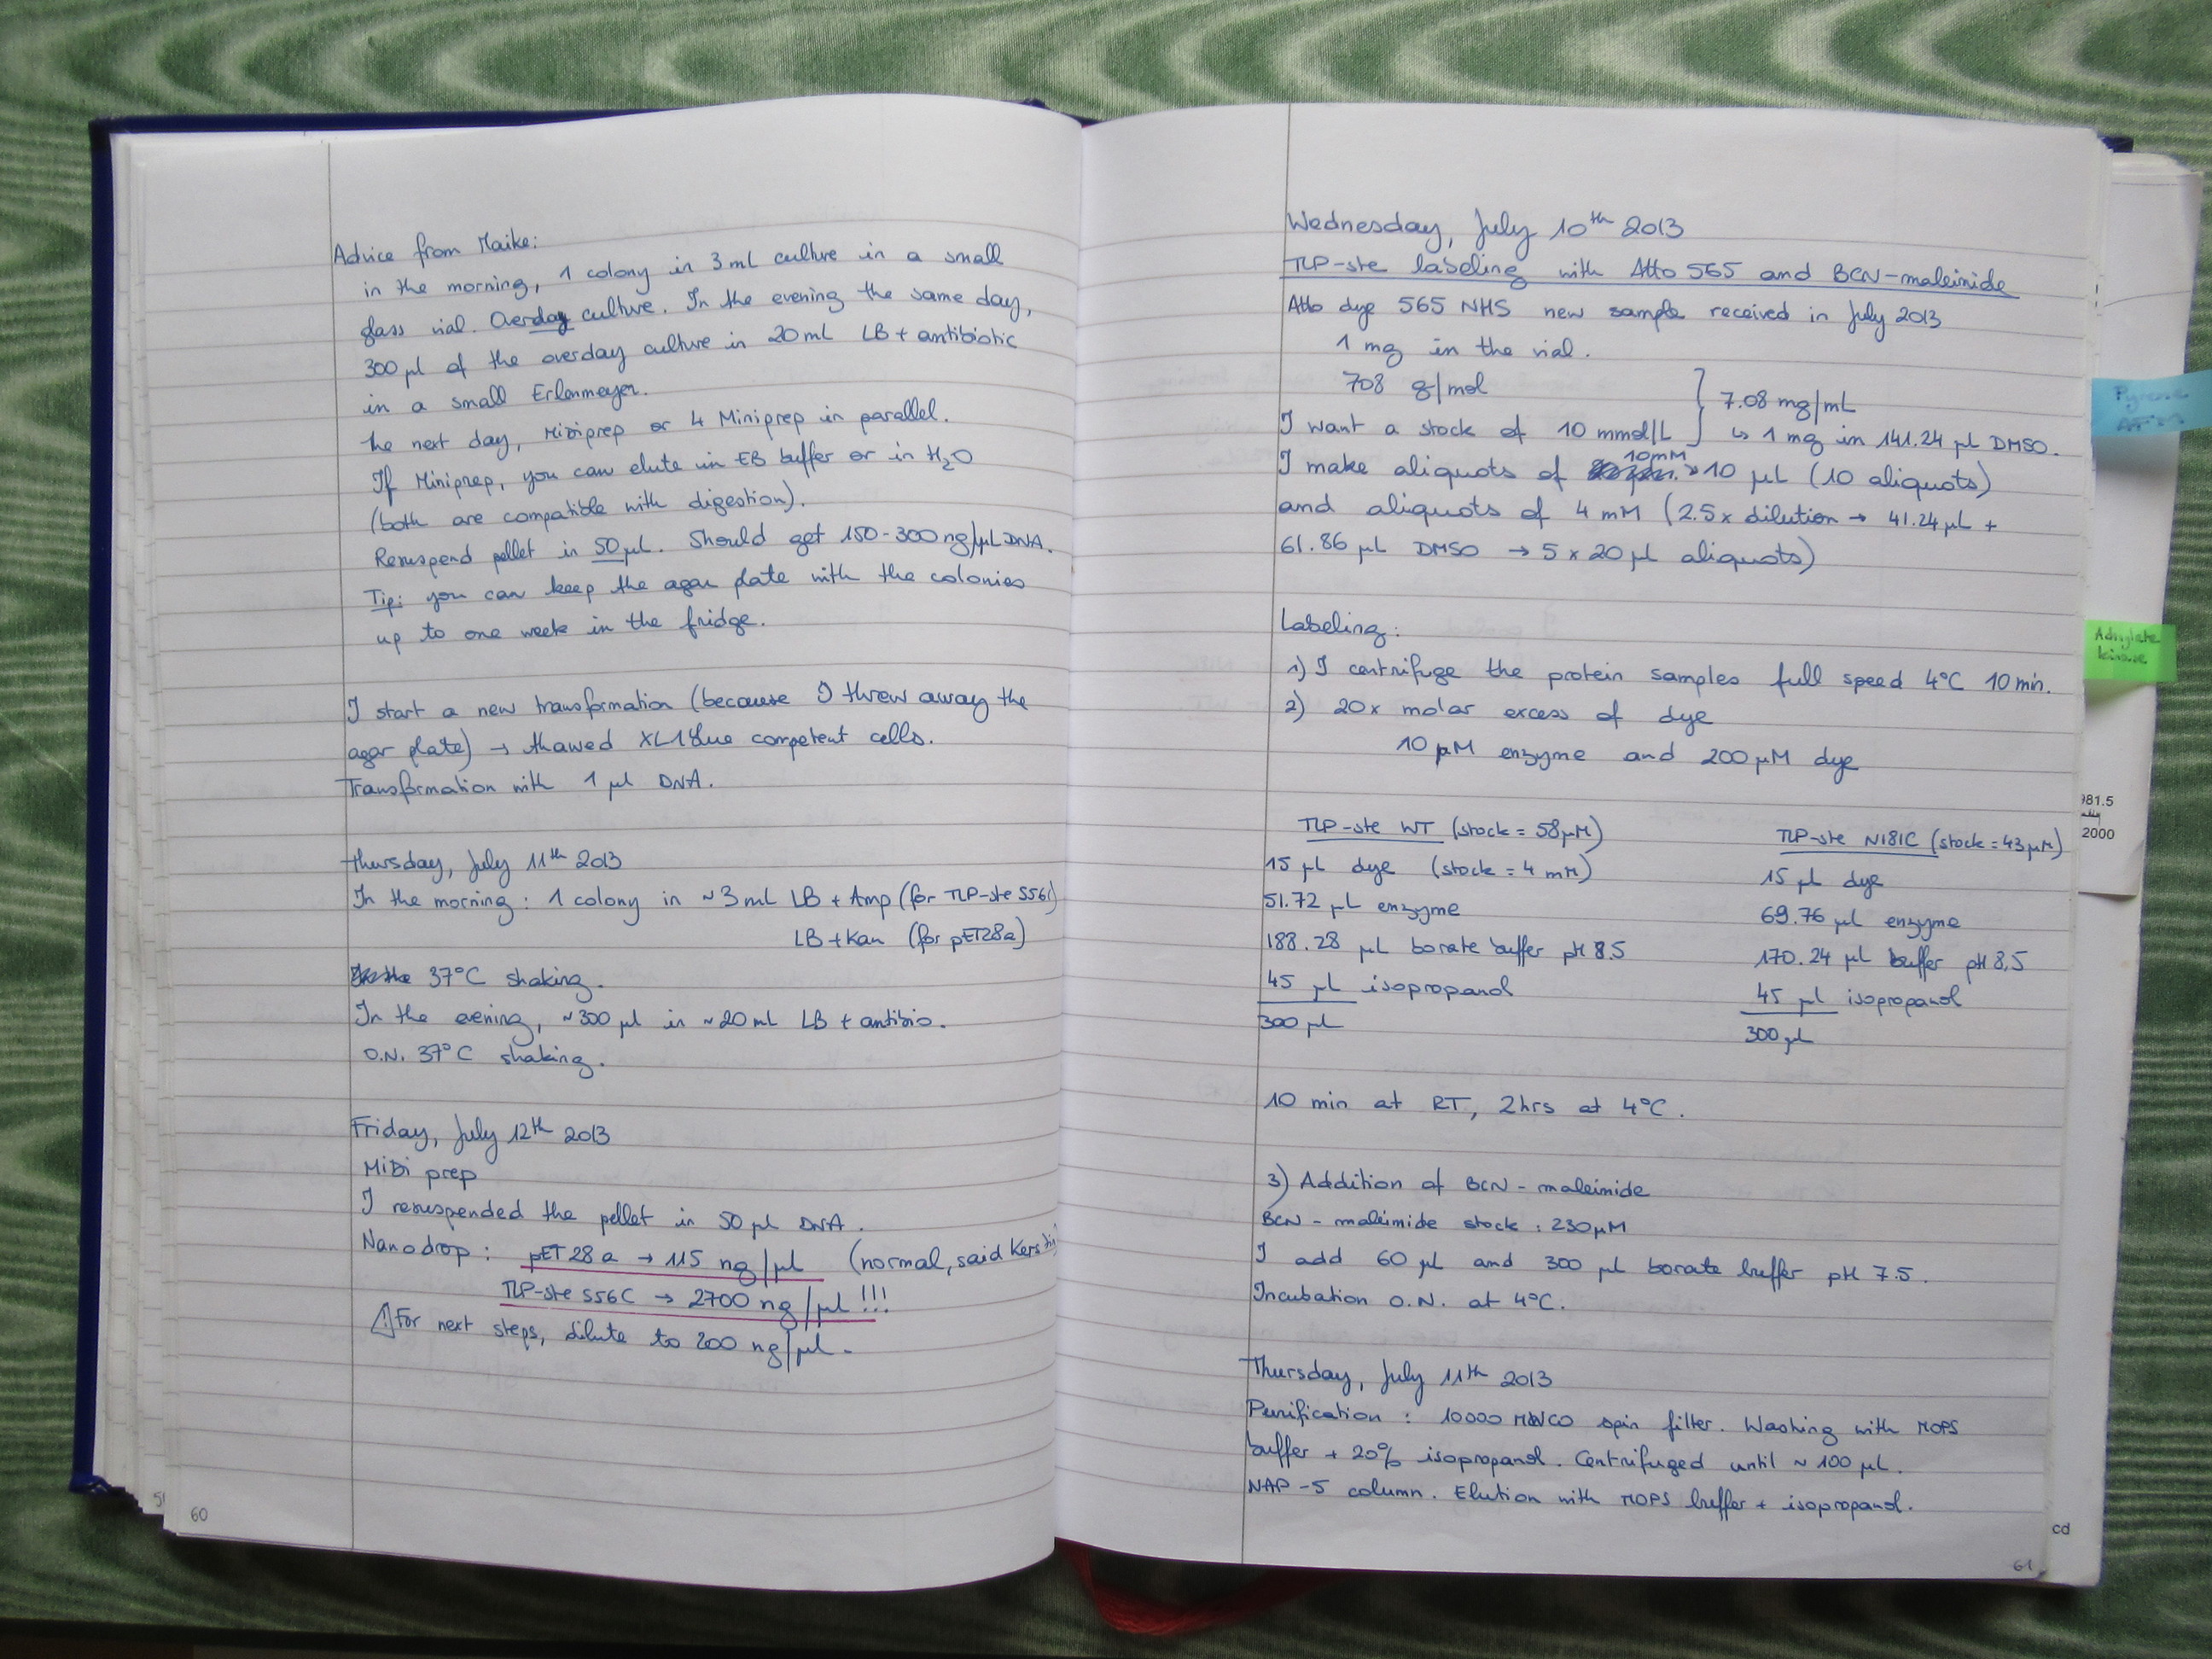 Advice from Maike:
in the morning, 1 colony in 3 mL culture in a small
glass vial. Overday culture. In the evening the same day,
300 µl of the overday culture in 20 mL LB + antibiotic
in a small Erlenmeyer.
the next day, Midiprep or 4 Miniprep in parallel.
If Miniprep, you can elute in EB buffer or in H₂O
(both are compatible with digestion).
Resuspend pellet in 50 µl. Should get 150-300 ng/µl DNA.
Tip: you can keep the agar plate with the colonies
up to one week in the fridge.
I start a new transformation (because I threw away the
agar plate) → thawed XL1blue competent cells.
Transformation with 1 µl DNA.
Thursday, July 11th 2013
In the morning: 1 colony in ~3 mL LB + Amp (for TLP-ste S56C)
LB + Kan (for pET28a)
37°C shaking.
In the evening, ~300 µl in ~20 mL LB + antibio.
O.N. 37°C shaking.
Friday, July 12th 2013
Midi prep
I resuspended the pellet in 50 µl DNA.
Nanodrop: pET28a → 115 ng/µl (normal, said Kerstin)
TLP-ste S56C → 2700 ng/µl !!!
⚠ For next steps, dilute to 200 ng/µl.
60
Wednesday, July 10th 2013
TLP-ste labeling with Atto 565 and BCN-maleimide
Atto dye 565 NHS new sample received in July 2013
1 mg in the vial.
708 g/mol
7.08 mg/mL
I want a stock of 10 mmol/L ↳ 1 mg in 141.24 µl DMSO.
I make aliquots of 10mM → 10 µL (10 aliquots)
and aliquots of 4 mM (2.5x dilution → 41.24 µL +
61.86 µl DMSO → 5 x 20 µl aliquots)
Labeling:
1) I centrifuge the protein samples full speed 4°C 10 min.
2) 20x molar excess of dye
10 µM enzyme and 200 µM dye
TLP-ste WT (stock = 58µM)
15 µl dye (stock = 4 mM)
51.72 µL enzyme
188.28 µl borate buffer pH 8.5
45 µl isopropanol
300 µl
TLP-ste N181C (stock = 43µM)
15 µl dye
69.76 µl enzyme
170.24 µl buffer pH 8,5
45 µl isopropanol
300 µl
10 min at RT, 2hrs at 4°C.
3) Addition of BCN-maleimide
BCN-maleimide stock: 230µM
I add 60 µl and 300 µl borate buffer pH 7.5.
Incubation O.N. at 4°C.
Thursday, July 11th 2013
Purification: 10000 MWCO spin filter. Washing with MOPS
buffer + 20% isopropanol. Centrifuged until ~ 100 µl.
NAP-5 column. Elution with MOPS buffer + isopropanol.
61
Pyrene
AFM
Adenylate
kinase
981.5
2000
cd